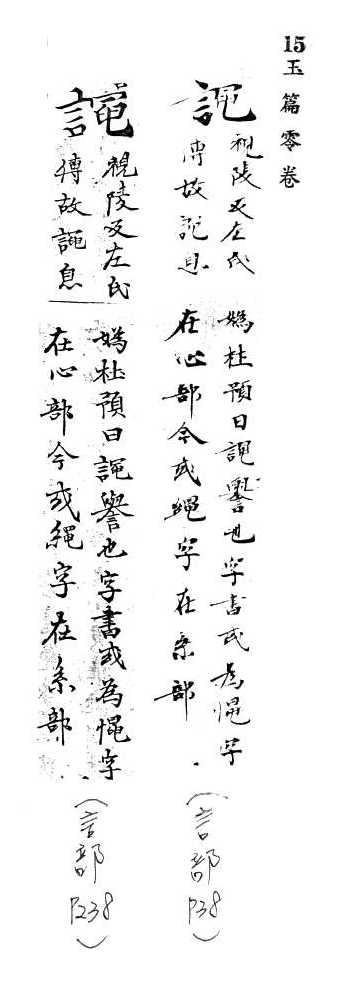 15玉篇零卷
譝
視陵反左氏
傳故譝息
媯杜預曰譝譽也字書或為憴字
在心部今或繩字在糸部
(言部P38)
譝
視陵反左氏
傳故譝息
媯杜預曰譝譽也字書或為憴字
在心部今或繩字在糸部
(言部P238)